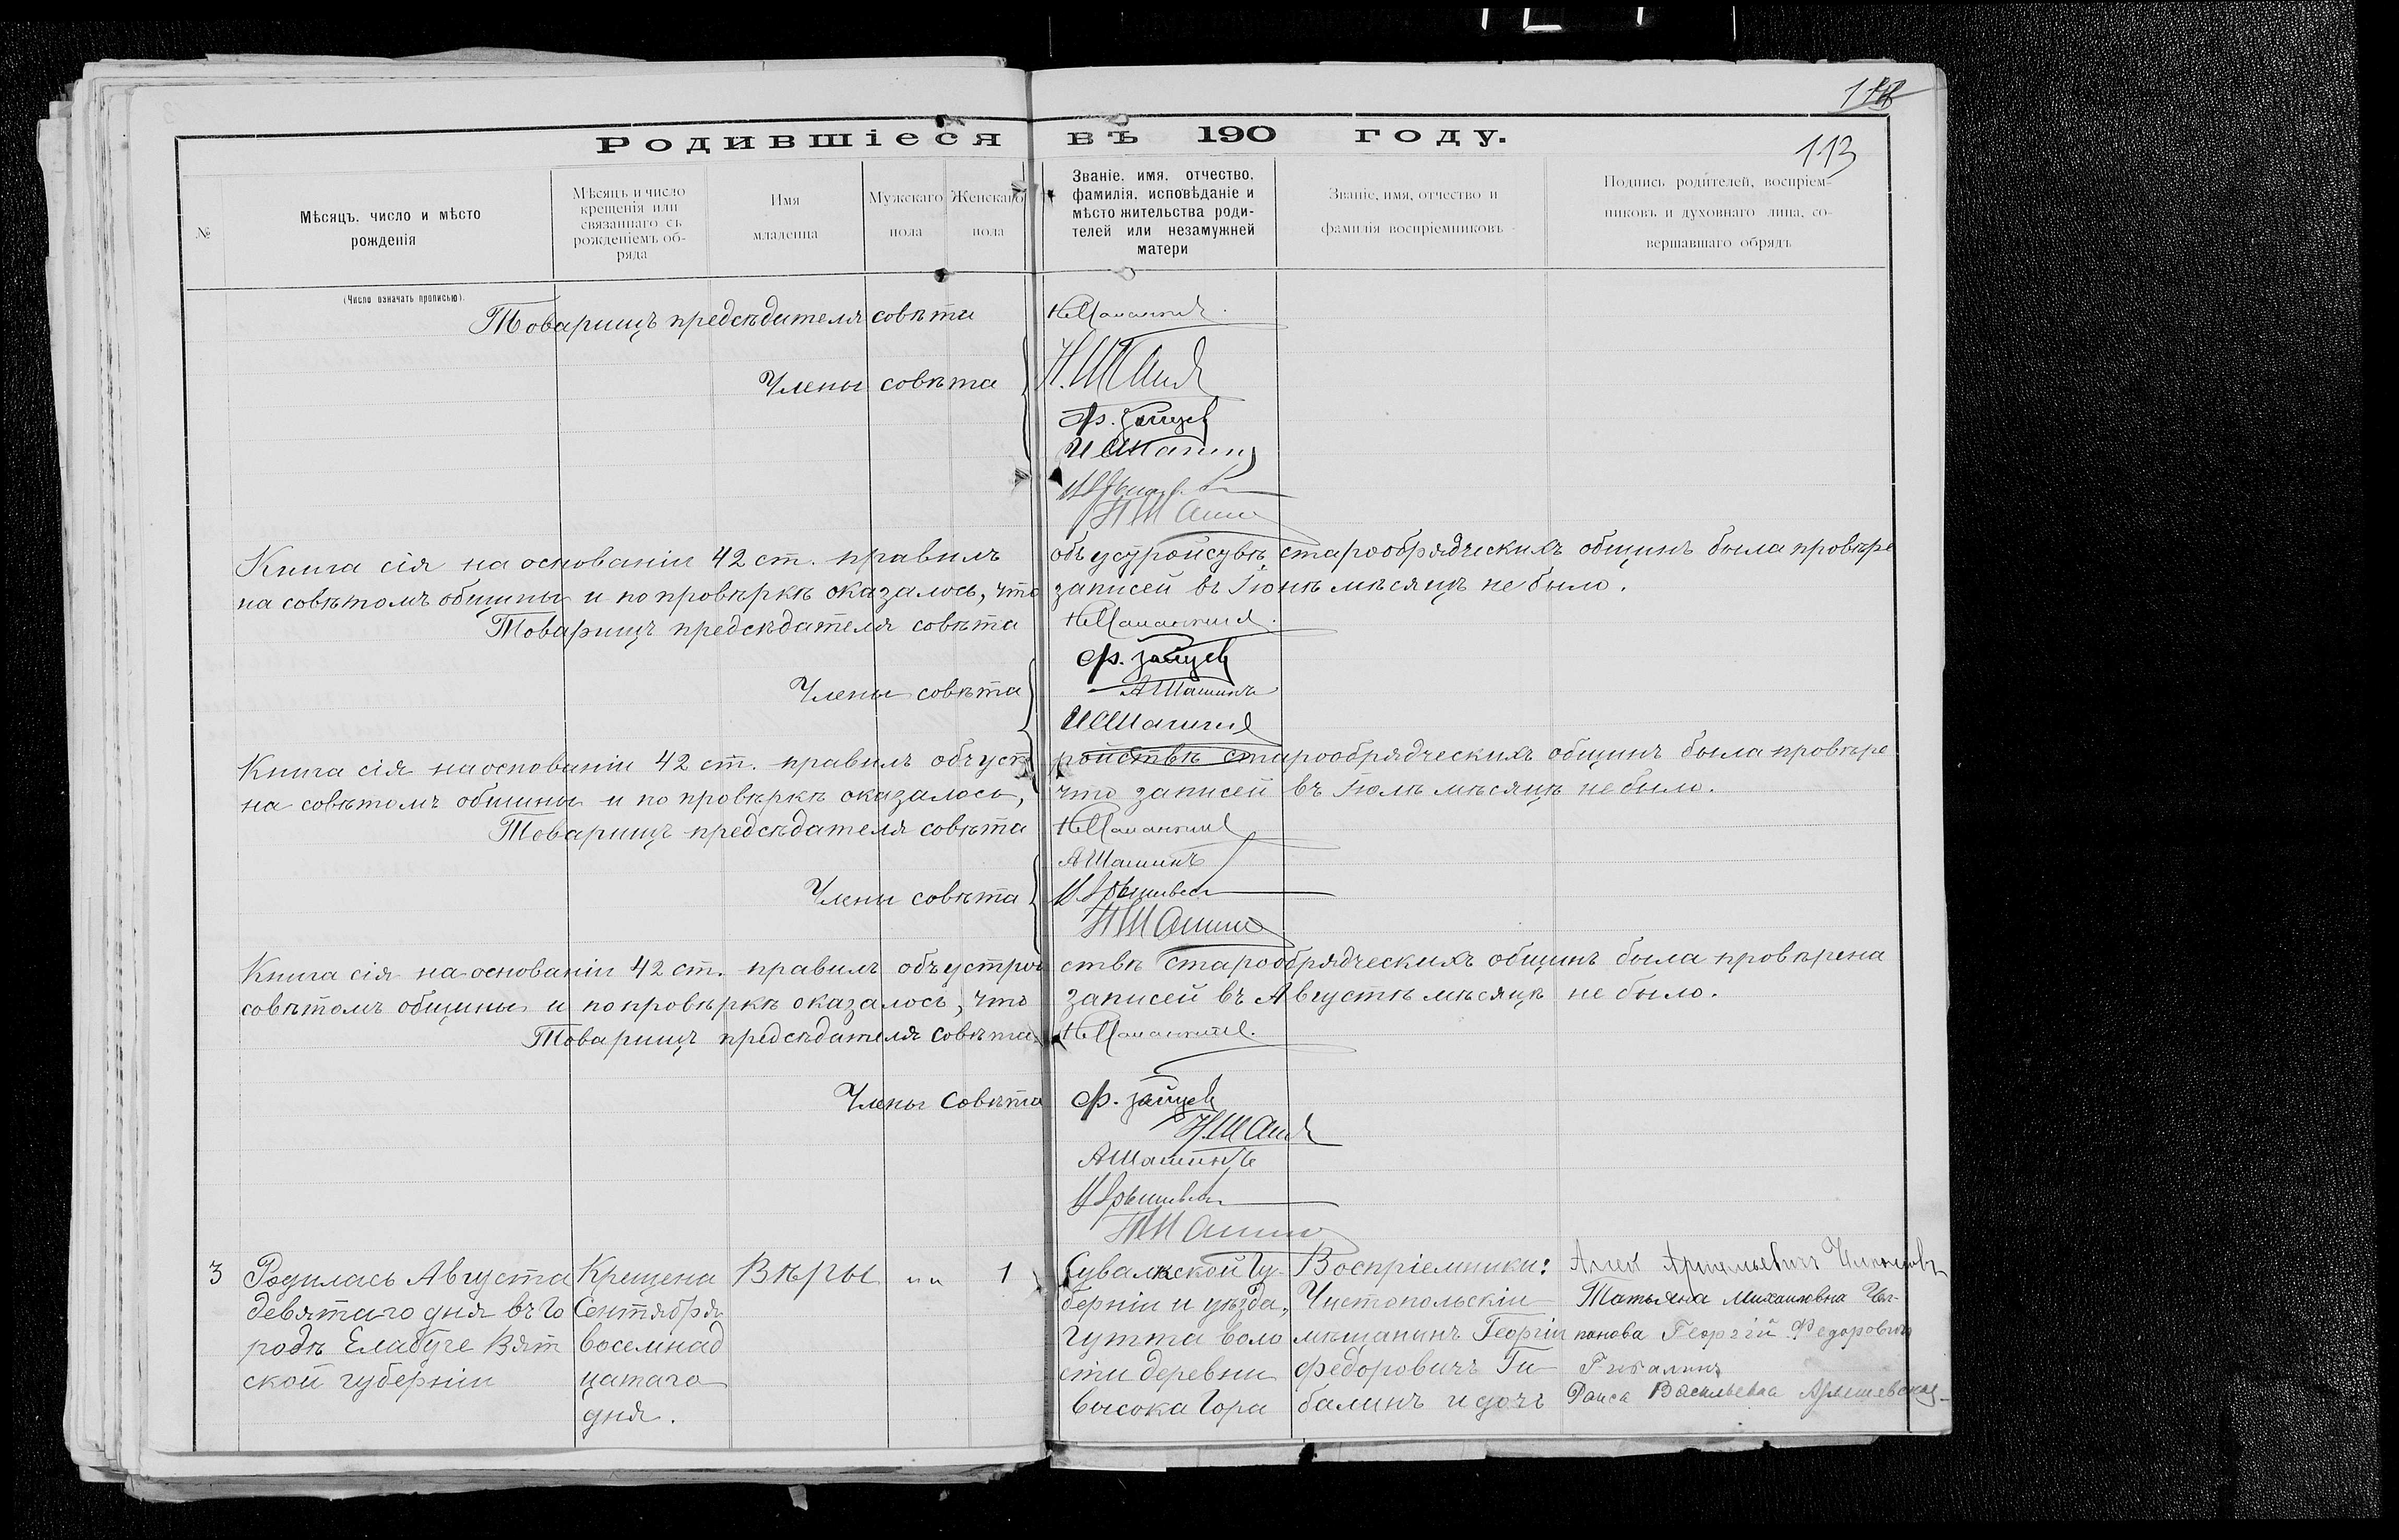 113
Родившіеся въ 190 году.
№
Мѣсяцъ, число и мѣсто рожденія
Мѣсяцъ и число крещенія или связаннаго съ рожденіемъ обряда
Имя младенца
Мужскаго пола
Женскаго пола
Званіе, имя, отчество, фамилія, исповѣданіе и мѣсто жительства родителей или незамужней матери
Званіе, имя, отчество и фамилія воспріемниковъ
Подпись родителей, воспріемниковъ и духовнаго лица, совершавшаго обрядъ
(Число означать прописью).
Товарищъ предсѣдателя совѣта
Члены совѣта
Ф. Зайцев
Книга сія на основаніи 42 ст. правилъ объ устройсувѣ старообрядческихъ общинъ была провѣре
на совѣтомъ общины и по провѣркѣ оказалось, что записей въ Іюнѣ мѣсяцѣ не было.
Товарищъ предсѣдателя совѣта
Ф. Зайцев
Члены совѣта
А Шашинъ
Книга сія на основаніи 42 ст. правилъ объ уст ройствѣ старообрядческихъ общинъ была провѣре
на совѣтомъ общины и по провѣркѣ оказалось, что записей въ Іюлѣ мѣсяцѣ не было.
Товарищъ предсѣдателя совѣта
А Шашинъ
Члены совѣта
Книга сія на основаніи 42 ст. правилъ объ устрой ствѣ старообрядческихъ общинъ была провѣрена
совѣтомъ общины и по провѣркѣ оказалось, что записей въ Августѣ мѣсяцѣ не было.
Товарищъ предсѣдателя совѣта
Члены Совѣта Ф. Зайцев
А Шашинъ
3 Родилась Августа Крещена Вѣры " " 1 Сувалкской Гу- Воспріемники:
девятаго дня въ го Сентября берніи и уѣзда, Чистопольскій Татьяна Михаиловна
родѣ Елабуге Вят восемнад Гутта воло мѣщанинъ Георгій панова Георгій Федоровичъ
ской губерніи цатаго сти деревни Федоровичъ Ги Гибалинъ
дня. Высока Гора балинъ и дочь Раиса Васильевна